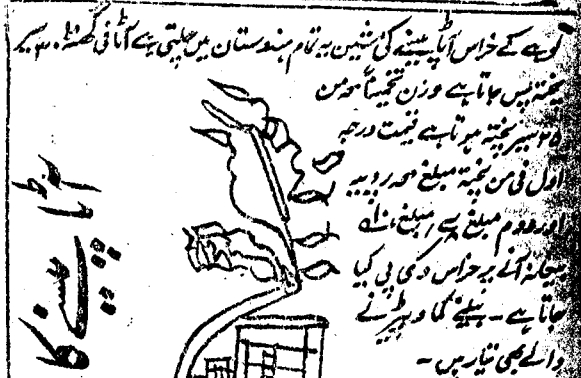 لوہے کے خراس آٹا پیسنے کی مشین یہ تمام ہندوستان میں چلتی ہے آٹا فی گھنٹہ ۳۰ سیر
پختہ پس جاتا ہے وزن تخمیناً من
۲۵ سیر پختہ ہوتا ہے قیمت درجہ
اول فی من پختہ مبلغ روپیہ
اور دوم مبلغ مبلغ
بیعانہ آنے پر خراس وی پی کیا
جاتا ہے ۔ بیلنے کماد پیڑنے
والے بھی تیار ہیں ۔
آٹا پیسنے کا